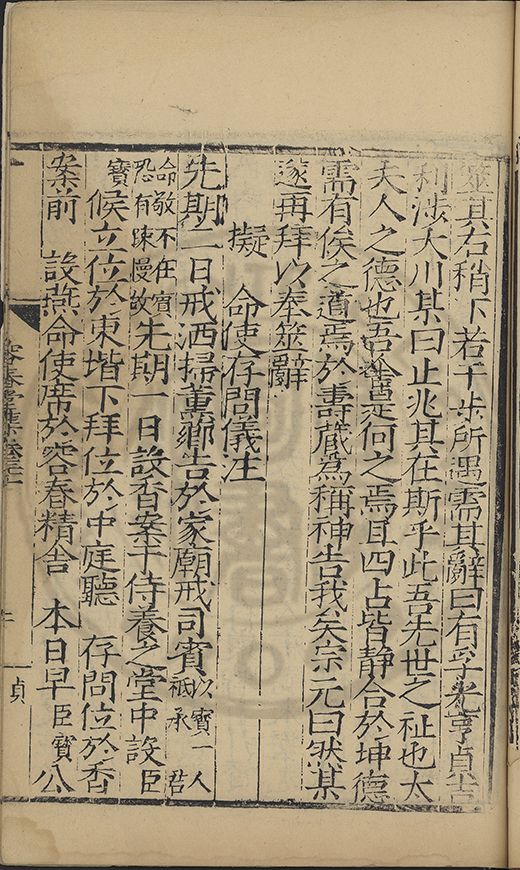 靈其右稍下若干步所遇需其辭曰有孚光亨貞吉
利涉大川某曰止兆其在斯乎此吾先世之祉也太
夫人之德也吾奮是何之焉且四占皆靜合於坤德
需有俟之道焉於壽藏為稱神告我矣宗元曰然某
遂再拜以奉筮辭
擬 命使存問儀注
先期二日戒洒掃薰鄉告於家廟戒司賓以賓一人祗承 君
命敬不在賓恐有踈慢故先期一日設香案于侍養之堂中設臣
寶候立位於東堦下拜位於中庭聽 存問位於香
案前 設燕命使席於容春精舍 本日早臣寶公
容春堂集卷
貞